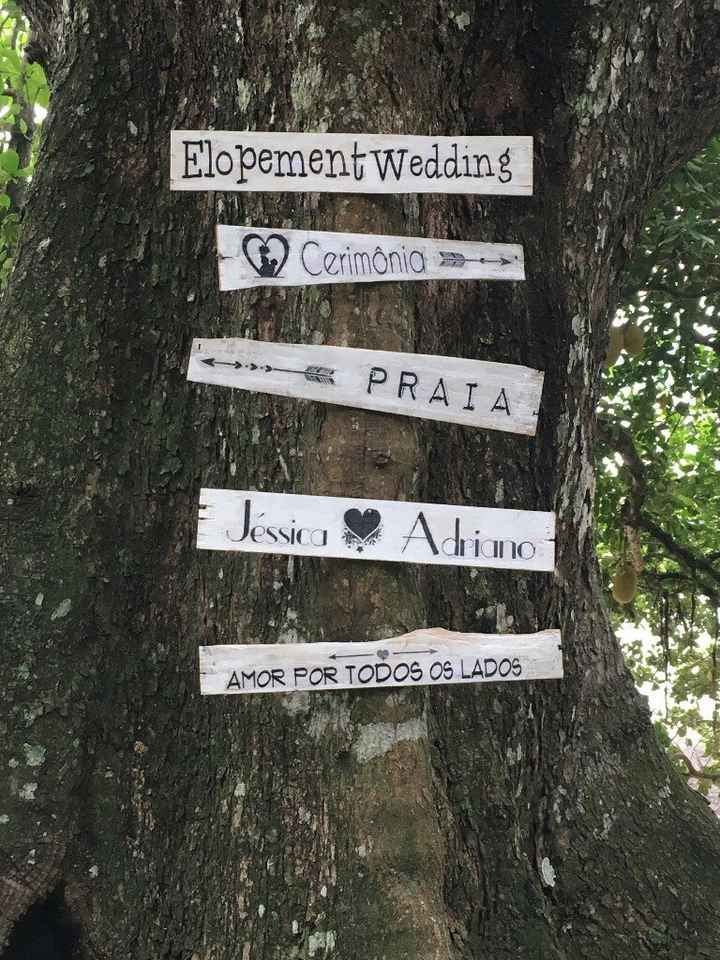 Elopement Wedding
Cerimônia
PRAIA
Jéssica Adriano
AMOR POR TODOS OS LADOS